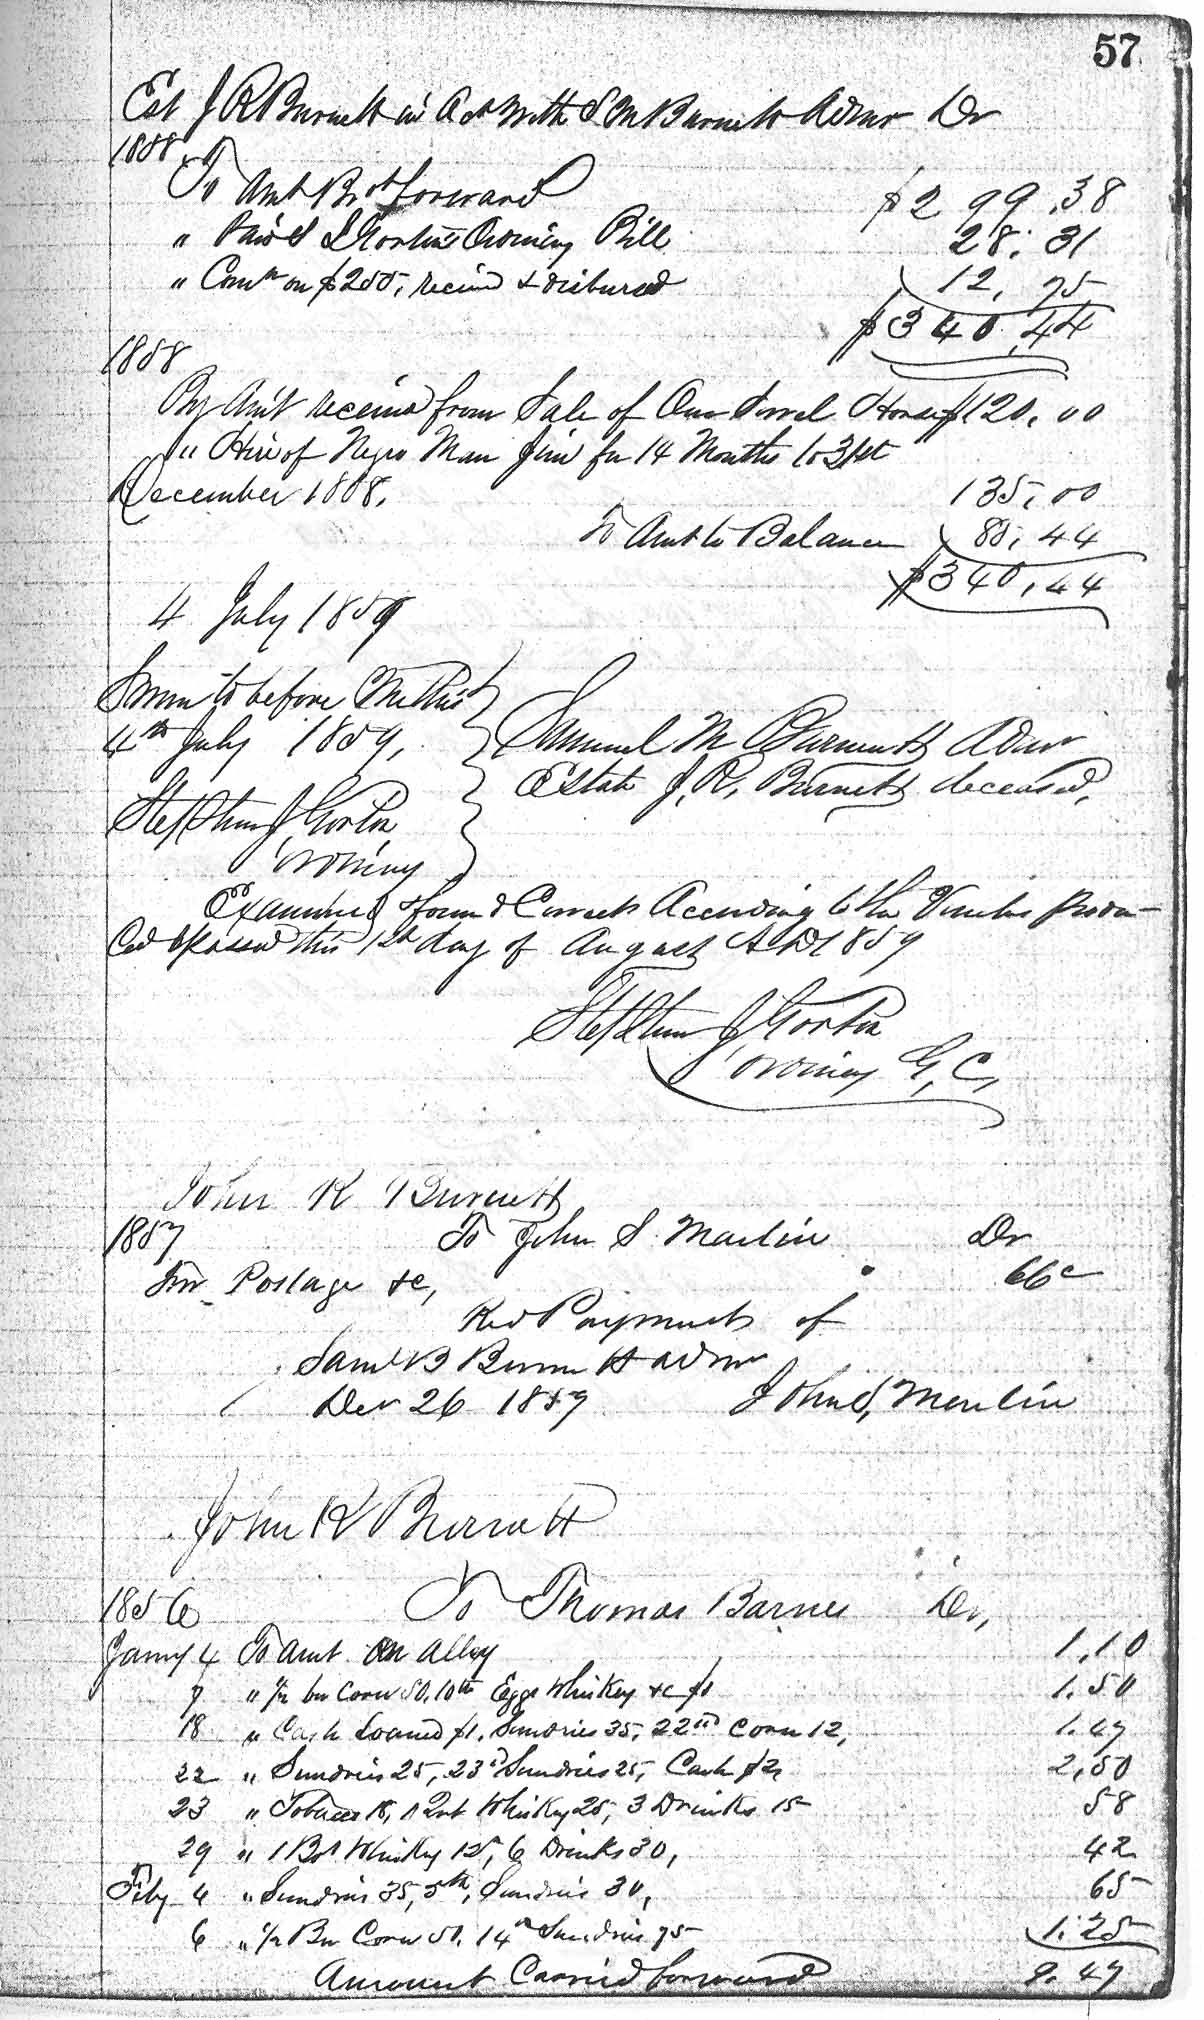 57
Est J R Burnett in Act with S M Burnett Admr Dr
1858
To Amt Brot forward $299.38
" Paid S J Gorton Ordinary Bill 28.31
" Comn on $255, receivd & disbursed 12.75
$340.44
1858
By Amt received from Sale of One Sorrel Horse $120.00
" Hire of Negro Man Jim for 14 Months to 31st
December 1858. 135.00
To Amt to Balance 85.44
$340.44
4 July 1859
Sworn to before Me this
4th July 1859,
Samuel M Burnett Admr
Estate J. R. Burnett deceased,
Stephen J Gorton
Ordinary
Examined & found Correct According to the Voucher produ-
ced & passed this 1st day of August A D 1859
Stephen J Gorton
Ordinary G, C,
John R Burnett
1857 To John S. Manlin Dr
For Postage &c, 66c
Recd Payments of
Saml B Burnett admr
Dec 26 1857 John S, Manlin
John R Burnett
1856 To Thomas Barnes Dr,
Jany 4 To Amt on alley 1.10
7 " 1/2 bu Corn 50. 10th Eggs Whiskey &c $1 1.50
18 " Cash Loaned $1. Sundries 35, 22nd Corn 12, 1.47
22 " Sundries 25, 23d Sundries 25, Cash $2 2.50
23 " Tobacco 18, 1 Qrt Whiskey 25, 3 Drinks 15 58
29 " 1 Bot Whiskey 12, 6 Drinks 30, 42
Feby 4 " Sundries 35, 5th, Sundries 30, 65
6 " 1/2 Bu Corn 50. 14th Sundries 75 1.25
Amount Carried forward 9.47